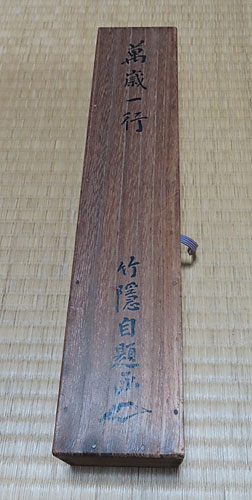 萬歳一行
竹隠自題